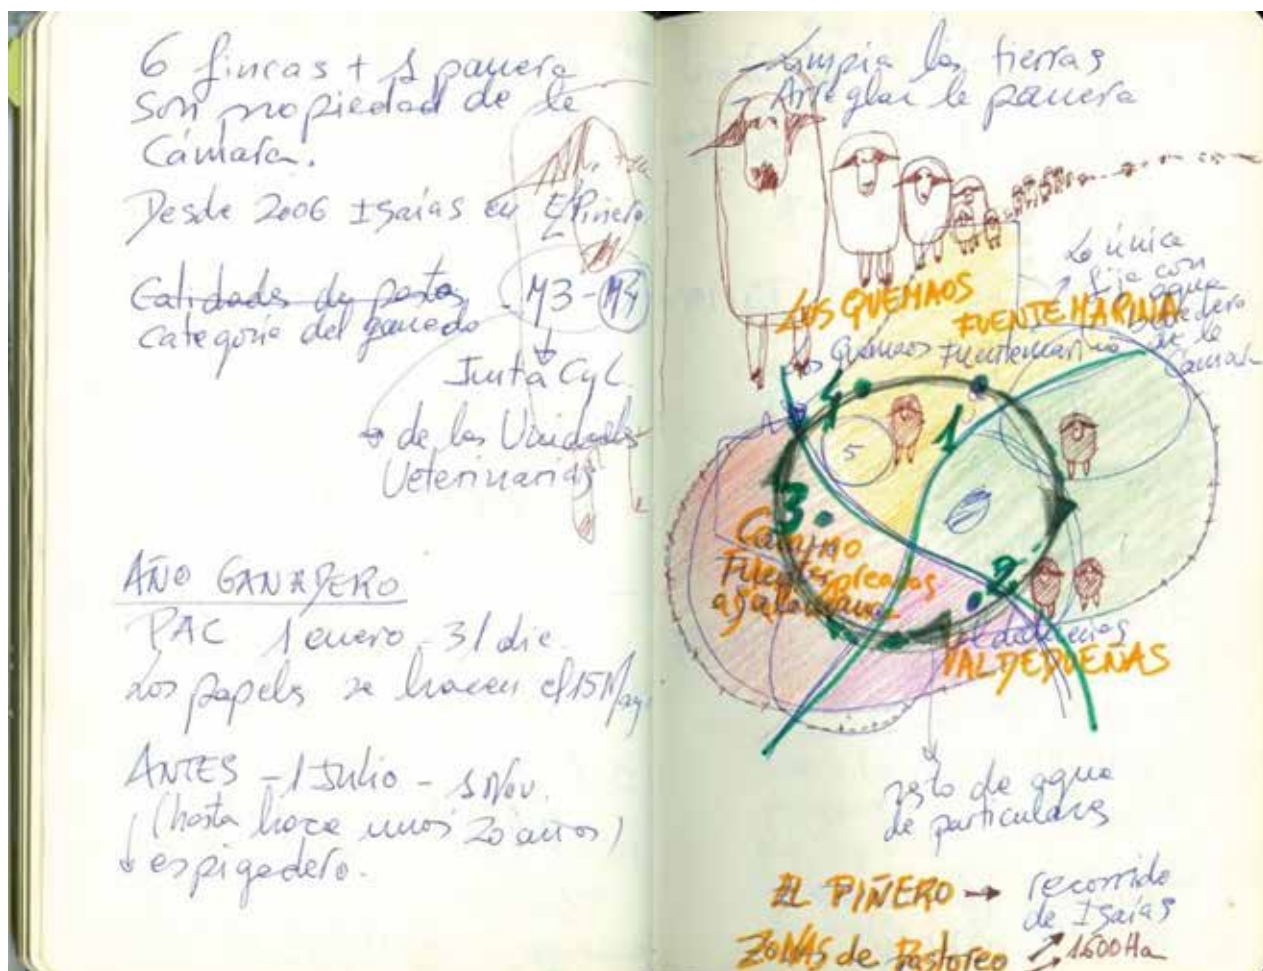 6 fincas + 1 panera
son propiedad de la
Cámara.
Desde 2006 Isaías en El Piñero
Calidades de pastos
categoría del ganado - M3 - M4
Junta CyL.
→ de las Unidades
Veterinarias
AÑO GANADERO
PAC 1 enero - 31 dic.
Los papeles se hacen el 15 May
ANTES - 1 Julio - 1 Nov.
(hasta hace unos 20 años)
↓ espigadero.
- Limpia las tierras
- Arreglar la panera
La única
fija con
agua
bebedero
de la
Cámara
LOS QUEMAOS
FUENTEMARINA
Los Quemaos Fuentemarina
4
1
5
3.
.2
Camino
Fuentespreadas
a
Valdedueñas
VALDEDUEÑAS
resto de agua
de particulares
EL PIÑERO → recorrido
de Isaías
ZONAS de Pastoreo 1600 Ha